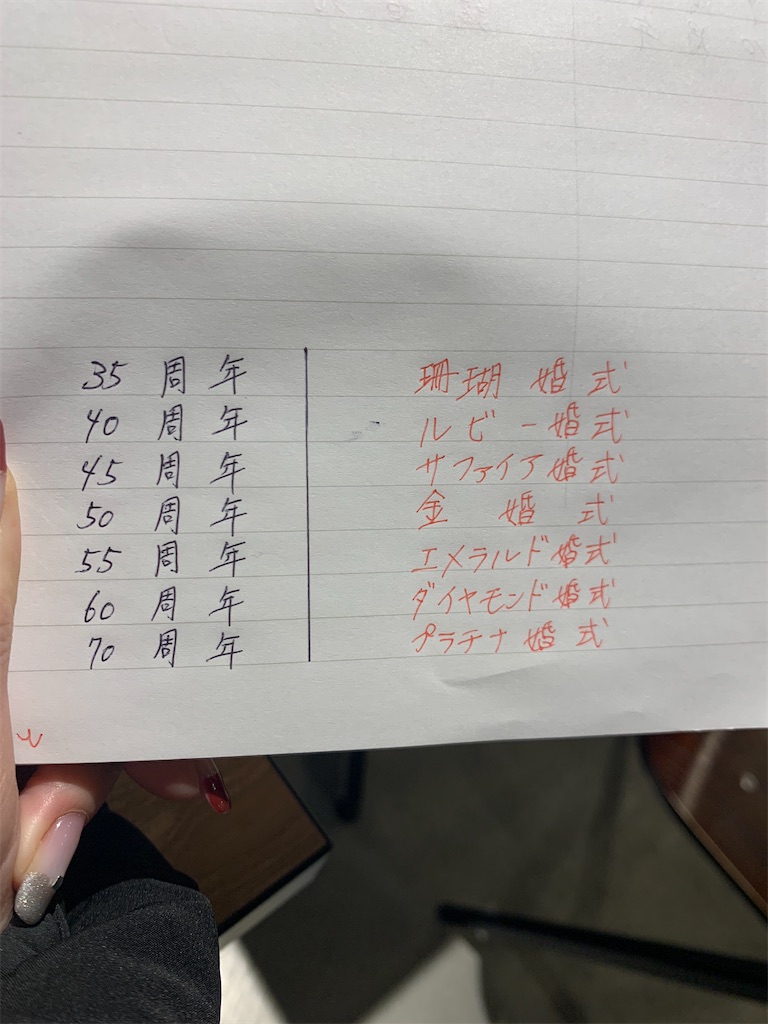 35 周年 珊瑚婚式
40 周年 ルビー婚式
45 周年 サファイア婚式
50 周年 金婚式
55 周年 エメラルド婚式
60 周年 ダイヤモンド婚式
70 周年 プラチナ婚式